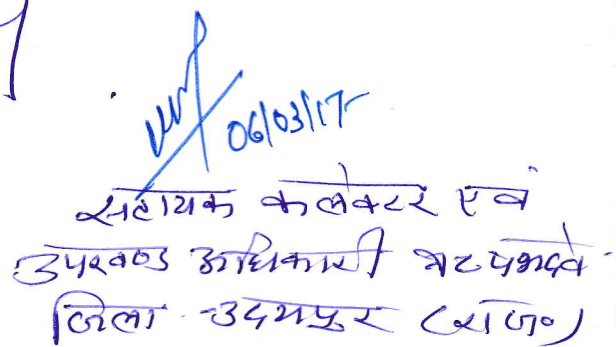 06/03/17
सहायक कलेक्टर एवं
उपखण्ड अधिकारी
जिला उदयपुर (राज०)